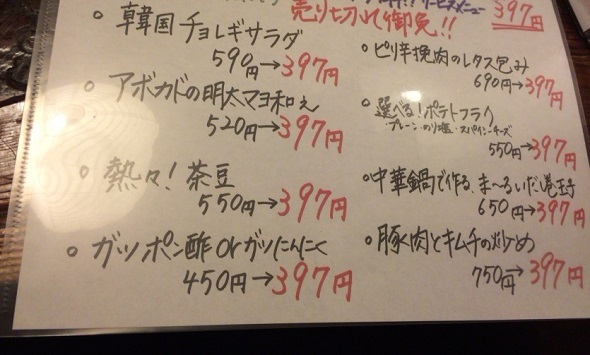 サービスメニュー 397円
売り切れ御免!!
○ 韓国チョレギサラダ
590円→397円
○ アボカドの明太マヨ和え
520円→397円
○ 熱々！茶豆
550円→397円
○ ガツポン酢orガツにんにく
450円→397円
○ ピリ辛挽肉のレタス包み
690円→397円
○ 選べる！ポテトフライ
・プレーン・のり塩・スパイシーチーズ
550円→397円
○ 中華鍋で作る、ま～るいだし巻玉子
650円→397円
○ 豚肉とキムチの炒め
750円→397円